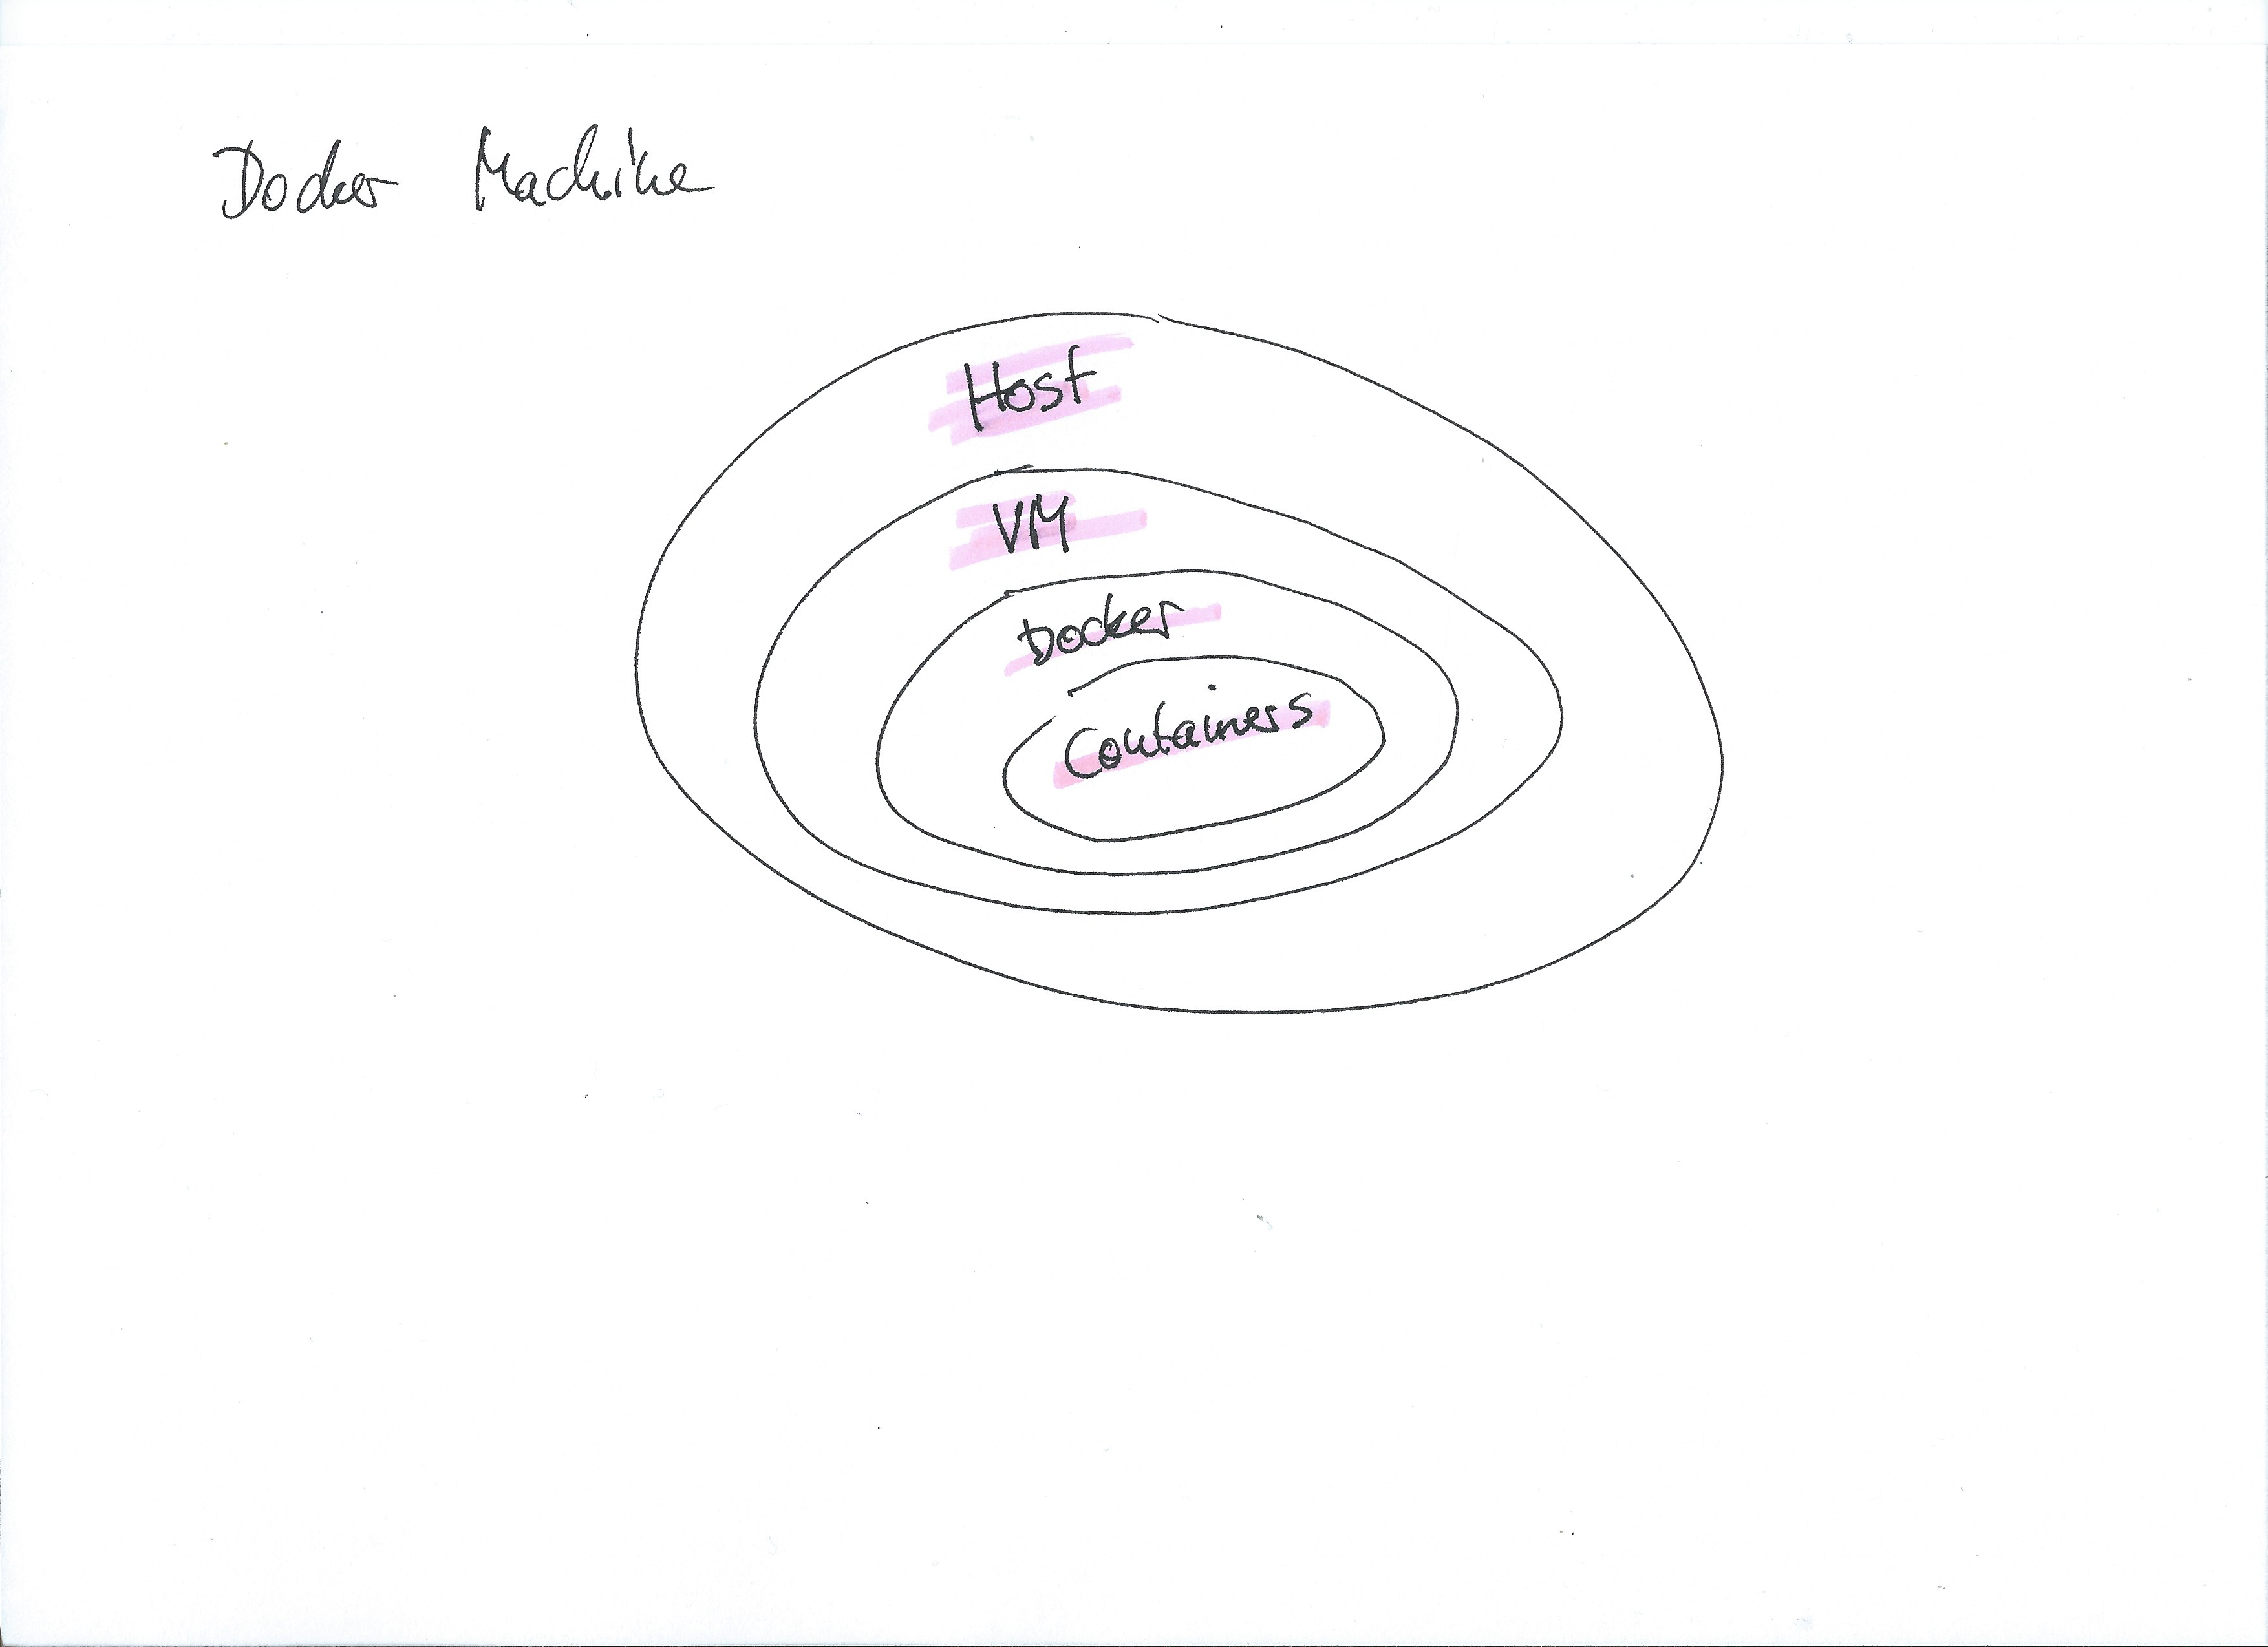 Docker Machine
Host
VM
Docker
Containers